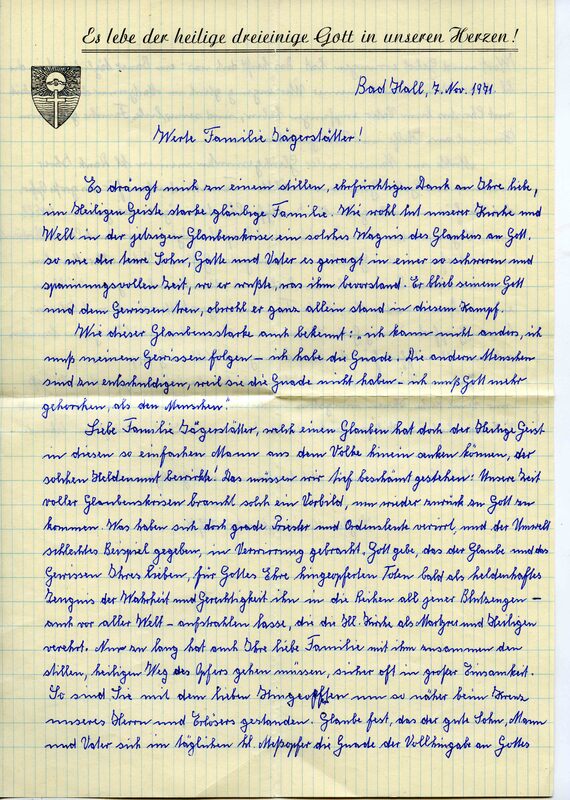 Es lebe der heilige dreieinige Gott in unseren Herzen!
Bad Hall, 7. Nov. 1971
Werte Familie Jägerstätter!
Es drängt mich zu einem stillen, ehrfürchtigen Dank an Ihre liebe,
im Heiligen Geiste starke gläubige Familie. Wie wohl tut unserer Kirche und
Welt in der jetzigen Glaubenskrise ein solches Wagnis des Glaubens an Gott.
so wie der teure Sohn, Gatte und Vater es gewagt in einer so schweren und
spannungsvollen Zeit, wo er wußte, was ihm bevorstand. Er blieb seinem Gott
und dem Gewissen treu, obwohl er ganz allein stand in diesem Kampf.
Wie dieser Glaubensstarke auch bekennt: „ich kann nicht anders, ich
muß meinem Gewissen folgen – ich habe die Gnade. Die andern Menschen
sind zu entschuldigen, weil sie die Gnade nicht haben – ich muß Gott mehr
gehorchen, als den Menschen."
Liebe Familie Jägerstätter, welch einen Glauben hat doch der Heilige Geist
in diesen so einfachen Mann aus dem Volke hinein senken können, der
solchen Heldenmut bewirkte! Das müssen wir tief beschämt gestehen: Unsere Zeit
voller Glaubenskrisen braucht solch ein Vorbild, um wieder zurück zu Gott zu
kommen. Was haben sich doch grade Priester und Ordensleute verirrt, und der Umwelt
schlechtes Beispiel gegeben, in Verwirrung gebracht. Gott gebe, das der Glaube und das
Gewissen Ihres lieben, für Gottes Ehre hingeopferten Toten bald als heldenhaftes
Zeugnis der Wahrheit und Gerechtigkeit ihn in die Reihen all jener Blutzeugen –
auch vor aller Welt – aufstrahlen lasse, die die Hl. Kirche als Martyrer und Heiligen
verehrt. Nur zu lang hat auch Ihre liebe Familie mit ihm zusammen den
stillen, heiligen Weg des Opfers gehen müssen, sicher oft in großer Einsamkeit.
So sind Sie mit dem lieben um so näher beim Kreuz
unseres Herrn und Erlösers gestanden. Glaube fest, das der gute Sohn, Mann
und Vater sich im täglichen hl. Meßopfer die Gnade der Vollhingabe an Gottes